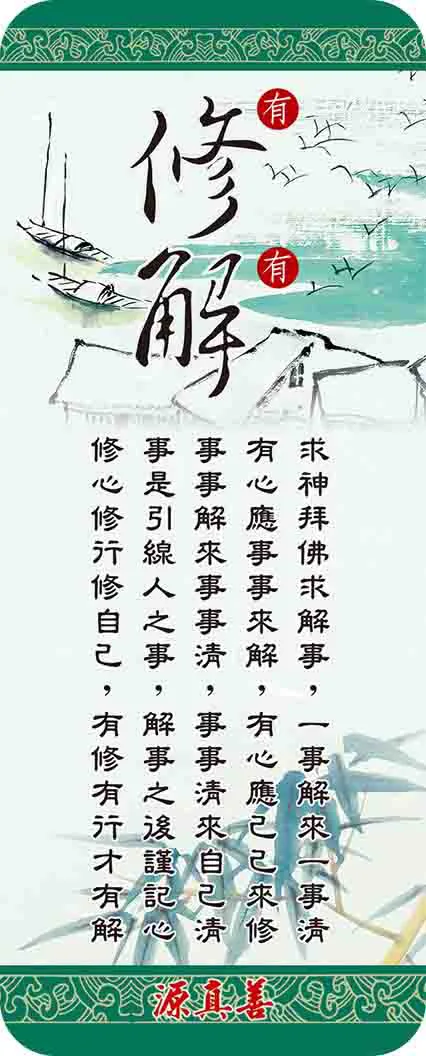 有修
有解
求神拜佛求解事，一事解來一事清
有心應事事來解，有心應己己來修
事事解來事事清，事事清來自己清
事是引線人之事，解事之後謹記心
修心修行修自己，有修有行才有解
善真源